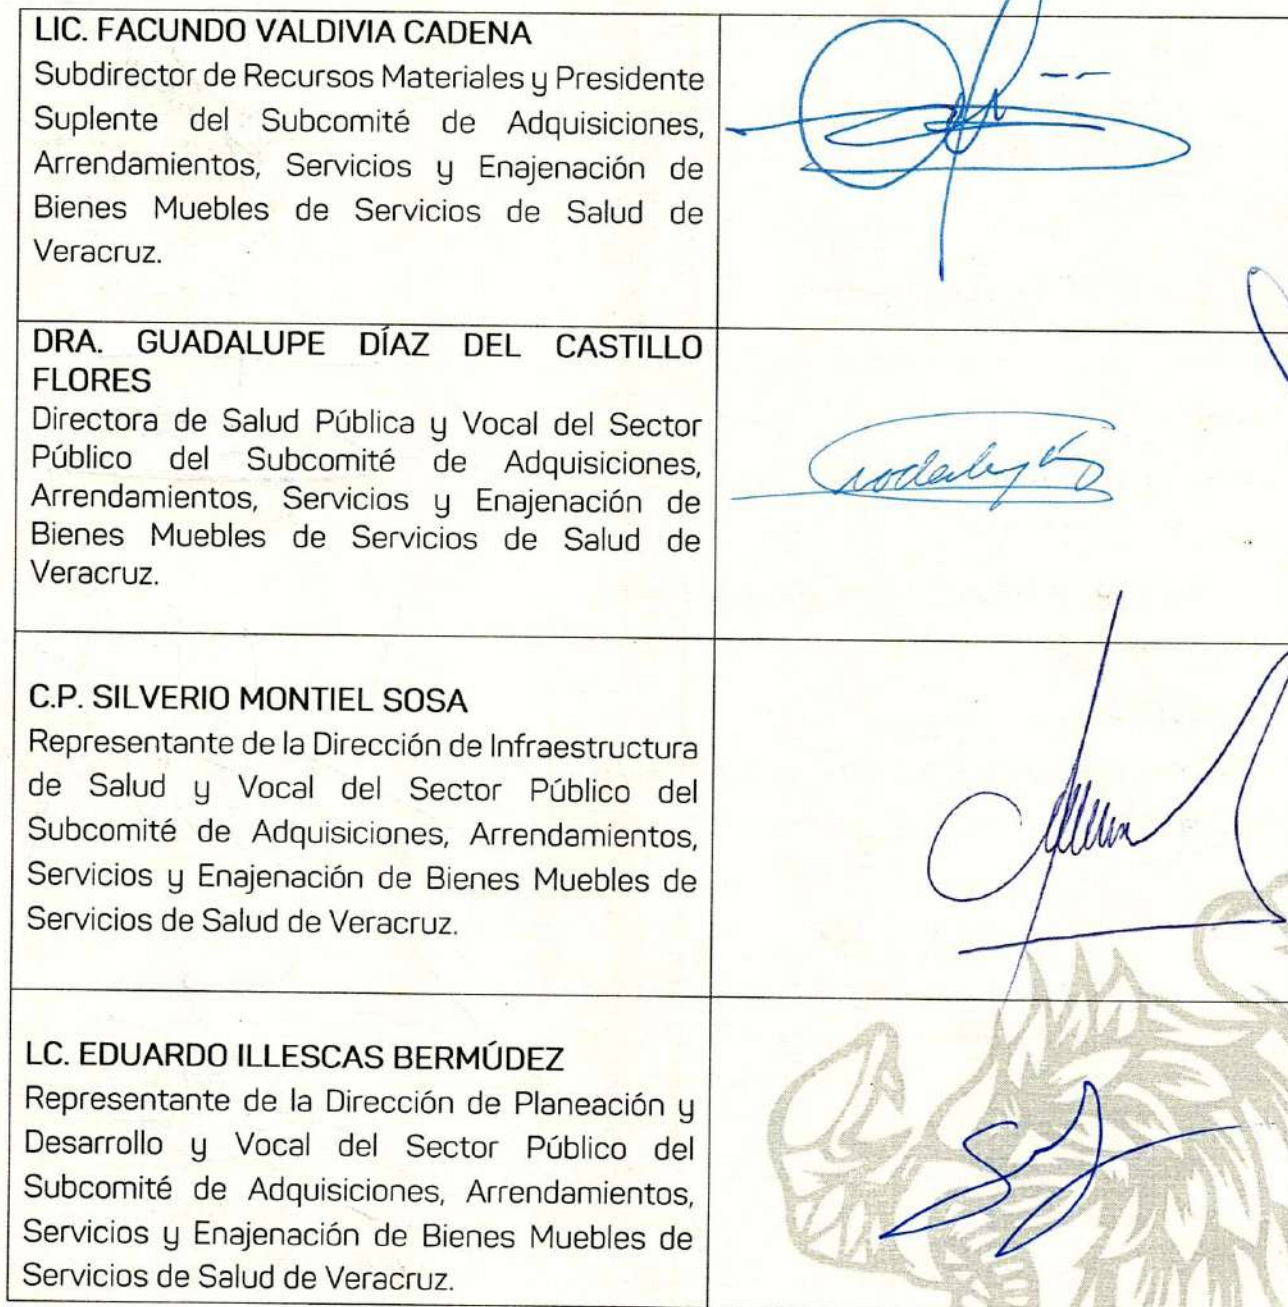 LIC. FACUNDO VALDIVIA CADENA
Subdirector de Recursos Materiales y Presidente
Suplente del Subcomité de Adquisiciones,
Arrendamientos, Servicios y Enajenación de
Bienes Muebles de Servicios de Salud de
Veracruz.
DRA. GUADALUPE DÍAZ DEL CASTILLO
FLORES
Directora de Salud Pública y Vocal del Sector
Público del Subcomité de Adquisiciones,
Arrendamientos, Servicios y Enajenación de
Bienes Muebles de Servicios de Salud de
Veracruz.
C.P. SILVERIO MONTIEL SOSA
Representante de la Dirección de Infraestructura
de Salud y Vocal del Sector Público del
Subcomité de Adquisiciones, Arrendamientos,
Servicios y Enajenación de Bienes Muebles de
Servicios de Salud de Veracruz.
LC. EDUARDO ILLESCAS BERMÚDEZ
Representante de la Dirección de Planeación y
Desarrollo y Vocal del Sector Público del
Subcomité de Adquisiciones, Arrendamientos,
Servicios y Enajenación de Bienes Muebles de
Servicios de Salud de Veracruz.